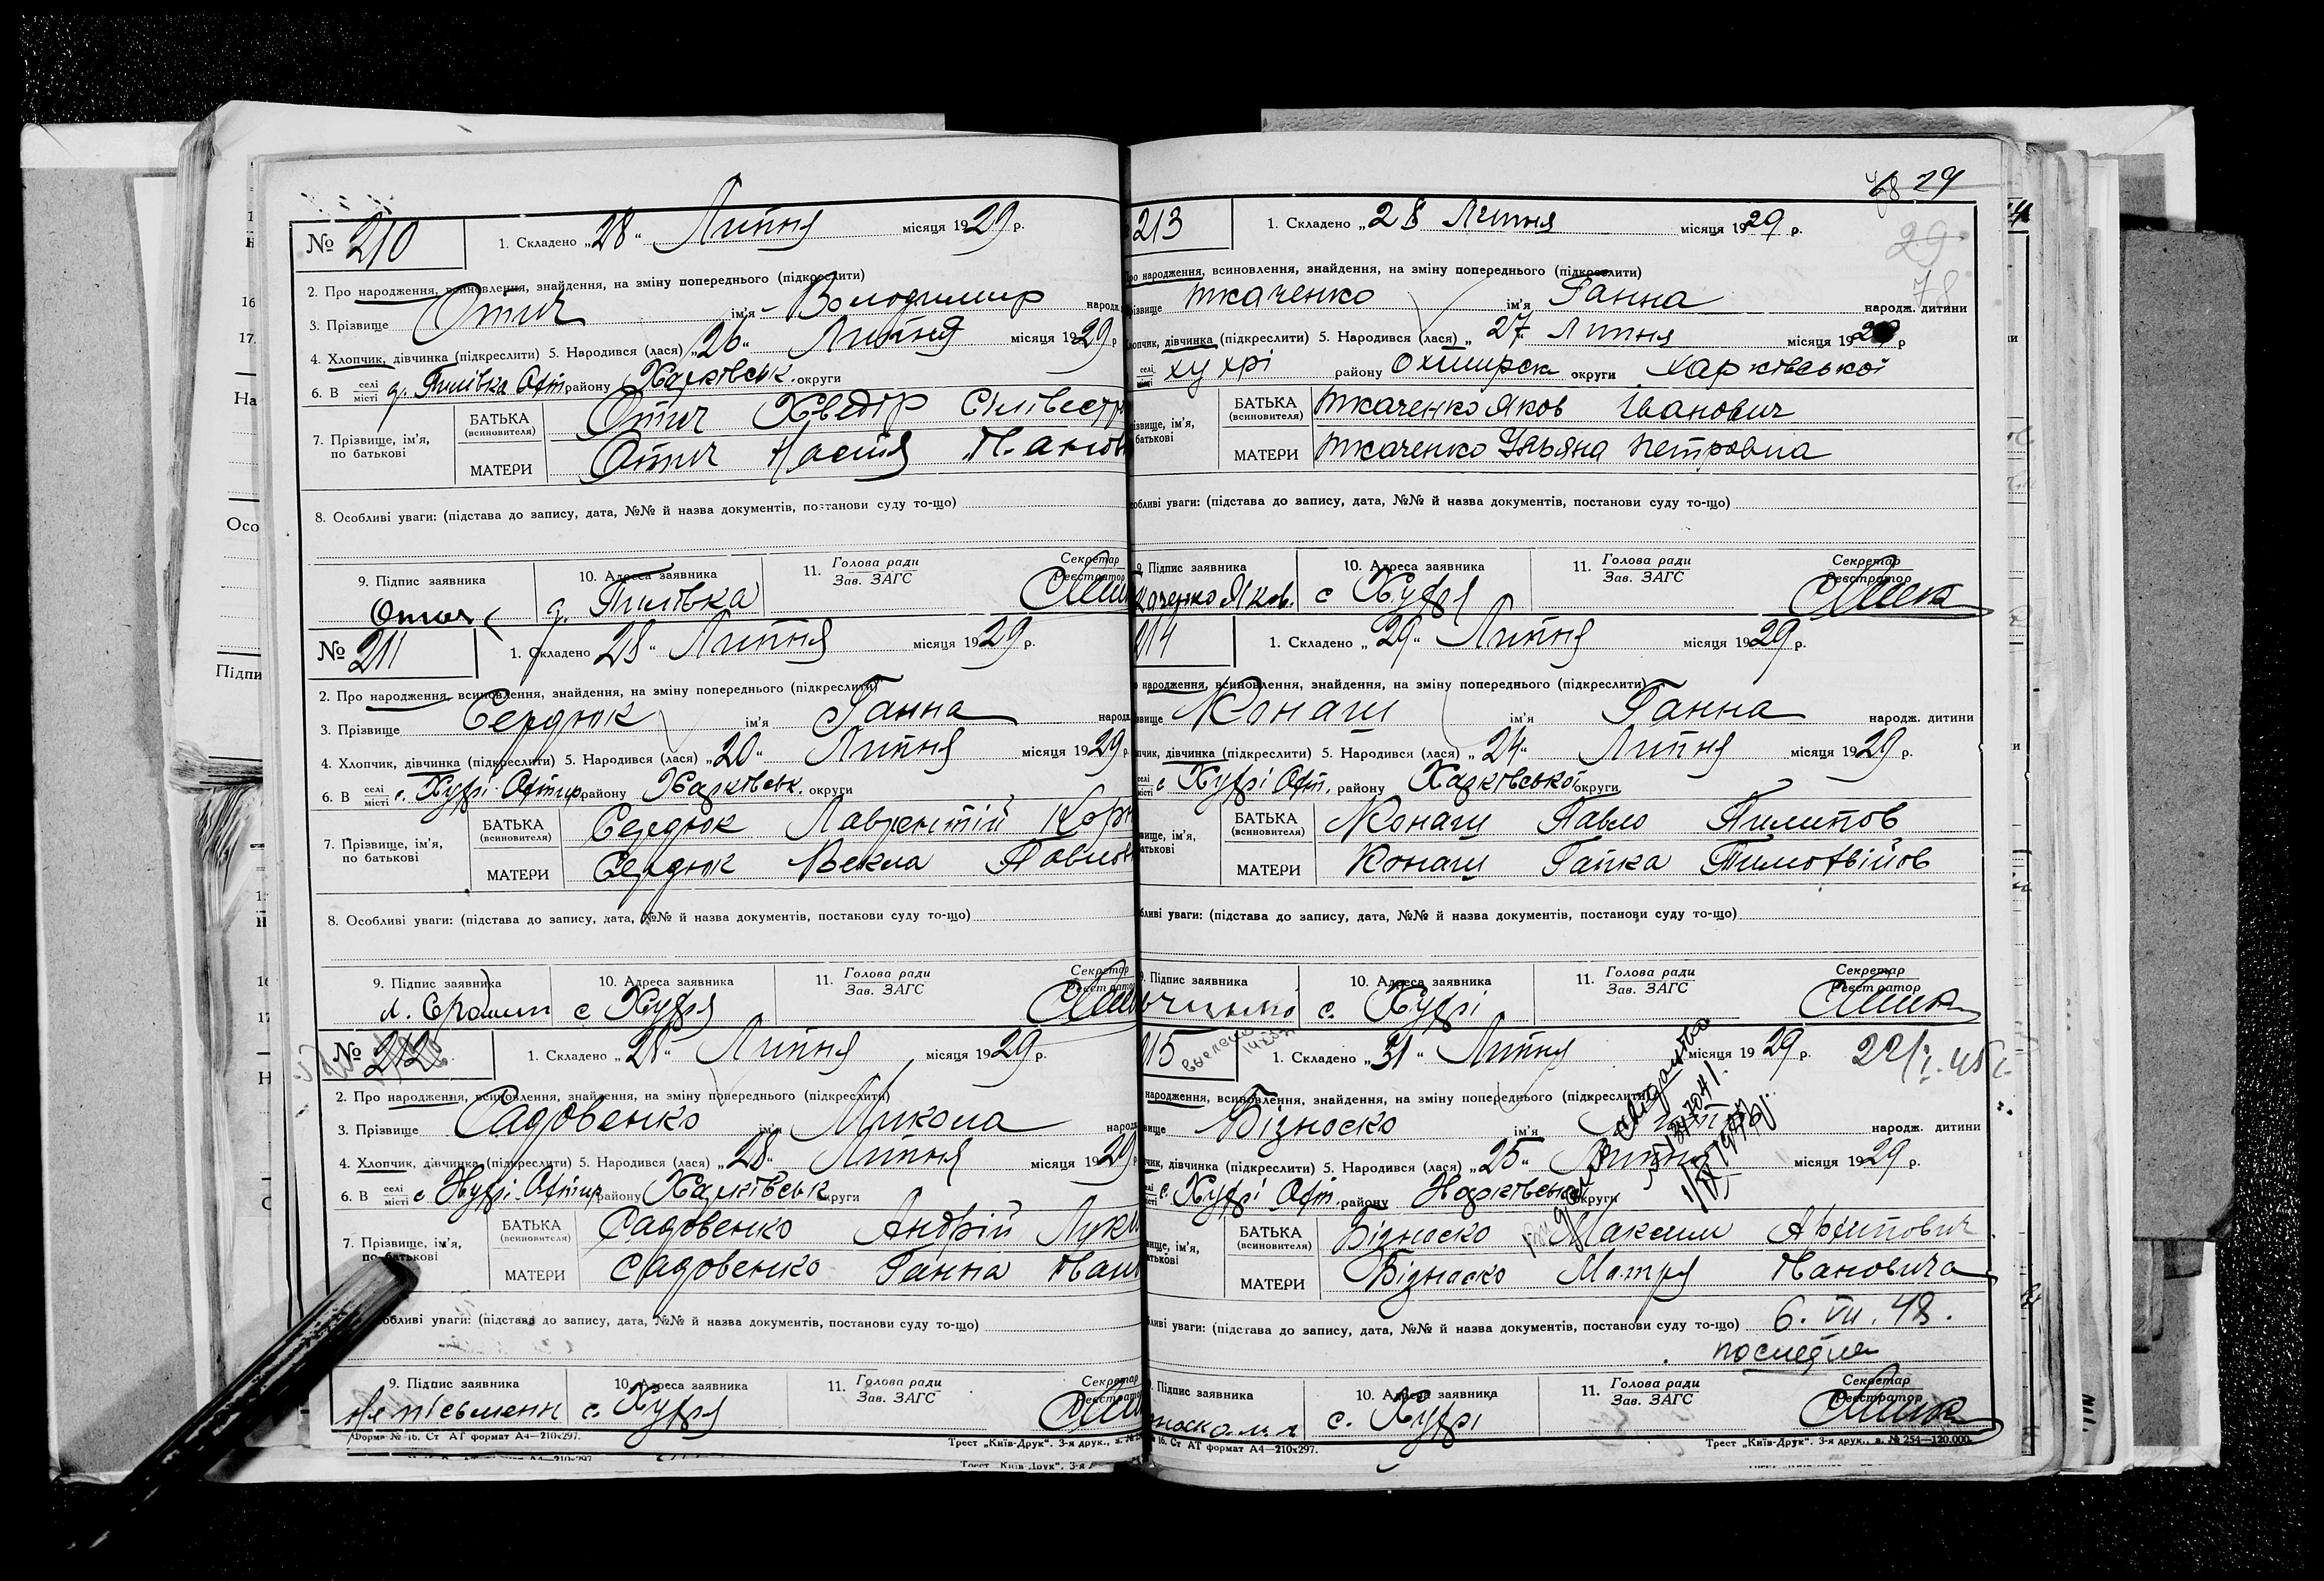 № 210
1. Складено „28“ Липня місяця 1929 р.
2. Про народження, всиновлення, знайдення, на зміну попереднього (підкреслити)
3. Прізвище Отич ім'я Володимир народ
4. Хлопчик, дівчинка (підкреслити) 5. Народився (лася) „26“ Липня місяця 1929 р
6. В селі місті району Харківськ. округи
7. Прізвище, ім'я, по батькові
БАТЬКА (всиновителя) Отич Хведір Сілівестр
МАТЕРИ Отич Настя
8. Особливі уваги: (підстава до запису, дата, №№ й назва документів, постанови суду то-що)
9. Підпис заявника Отич
10. Адреса заявника
11. Голова ради Зав. ЗАГС
Секретар Реєстратор
№ 211
1. Складено 28“ Липня місяця 1929 р.
2. Про народження, всиновлення, знайдення, на зміну попереднього (підкреслити)
3. Прізвище Сердюк ім'я Ганна народ
4. Хлопчик, дівчинка (підкреслити) 5. Народився (лася) „20“ Липня місяця 1929 р.
6. В селі місті с. Хухрі Охтир. району Харківськ. округи
7. Прізвище, ім'я, по батькові
БАТЬКА (всиновителя) Сердюк Лаврентій Корн
МАТЕРИ Сердюк Векла Павлов
8. Особливі уваги: (підстава до запису, дата, №№ й назва документів, постанови суду то-що)
9. Підпис заявника
10. Адреса заявника с Хухря
11. Голова ради Зав. ЗАГС
Секретар Реєстратор
№ 212
1. Складено „28“ Липня місяця 1929 р.
2. Про народження, всиновлення, знайдення, на зміну попереднього (підкреслити)
3. Прізвище Садовенко ім'я Микола народ
4. Хлопчик, дівчинка (підкреслити) 5. Народився (лася) „28“ Липня місяця 1929 р
6. В селі місті с Хухрі Охтир району Харківськ округи
7. Прізвище, ім'я, по батькові
БАТЬКА (всиновителя) Садовенко Андрій Лук
МАТЕРИ Садовенко Ганна
обливі уваги: (підстава до запису, дата, №№ й назва документів, постанови суду то-що)
9. Підпис заявника Не письменн
10. Адреса заявника с. Хухря
11. Голова ради Зав. ЗАГС
Секретар Реєстратор
Форма № 16. Ст АТ формат А4—210х297.
Трест „Київ-Друк“. 3-я друк., з. №
29
29
78
213
1. Складено „28 Липня місяця 1929 р.
Про народження, всиновлення, знайдення, на зміну попереднього (підкреслити)
різвище Ткаченко ім'я Ганна народж. дитини
Хлопчик, дівчинка (підкреслити) 5. Народився (лася) „27“ Липня місяця 192 р
селі місті Хухрі району Охтирск округи Харківської
різвище, ім'я, батькові
БАТЬКА (всиновителя) Ткаченко Яков Іванович
МАТЕРИ Ткаченко Ульяна Петровна
собливі уваги: (підстава до запису, дата, №№ й назва документів, постанови суду то-що)
9. Підпис заявника каченко Яков.
10. Адреса заявника с Хухря
11. Голова ради Зав. ЗАГС
Секретар Реєстратор
214
1. Складено „29“ Липня місяця 1929 р.
народження, всиновлення, знайдення, на зміну попереднього (підкреслити)
вище Конаш ім'я Ганна народж. дитини
пчик, дівчинка (підкреслити) 5. Народився (лася) „24“ Липня місяця 1929 р.
селі місті с Хухрі Охт. району Харківської округи
вище, ім'я, батькові
БАТЬКА (всиновителя) Конаш Павло Пилипов
МАТЕРИ Конаш Гапка Тимофвійов
бливі уваги: (підстава до запису, дата, №№ й назва документів, постанови суду то-що)
9. Підпис заявника
10. Адреса заявника с. Хухрі
11. Голова ради Зав. ЗАГС
Секретар Реєстратор
215
1. Складено „31“ Липня місяця 1929 р.
народження, всиновлення, знайдення, на зміну попереднього (підкреслити)
вище Бізноско ім'я народж. дитини
чик, дівчинка (підкреслити) 5. Народився (лася) „25“ Липня місяця 1929 р.
селі місті с. Хухрі Охт. району Харківськ округи
вище, ім'я, батькові
БАТЬКА (всиновителя) Бізноско Максим Архипович
МАТЕРИ Бізноско Матря Пановича
ливі уваги: (підстава до запису, дата, №№ й назва документів, постанови суду то-що) 6. VII. 48.
9. Підпис заявника
10. Адреса заявника с. Хухрі
11. Голова ради Зав. ЗАГС
Секретар Реєстратор
№ 16. Ст АТ формат А4—210х297.
Трест „Київ-Друк“. 3-я друк., з. № 254—120.000.